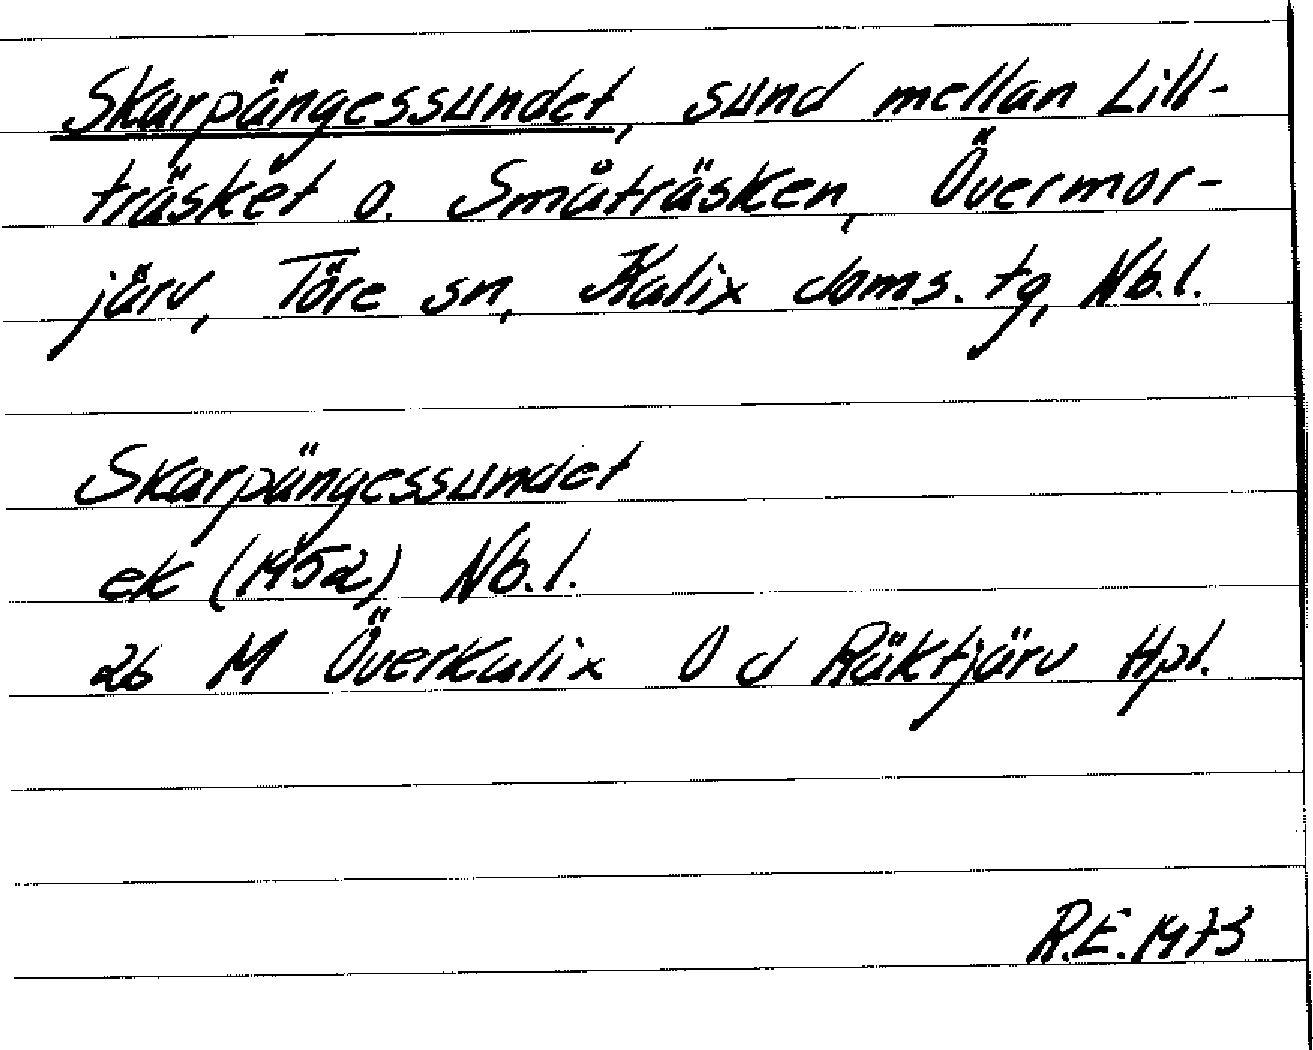 Skarpängessundet, sund mellan Lill-
träsket o. Småträsken, Övermor-
järv, Töre sn, Kalix doms. tg, Nb.l.
Skarpängessundet
ek (1952) Nb.l.
26 M Överkalix 0 d Räktjärv Hpl.
R.E. 1973